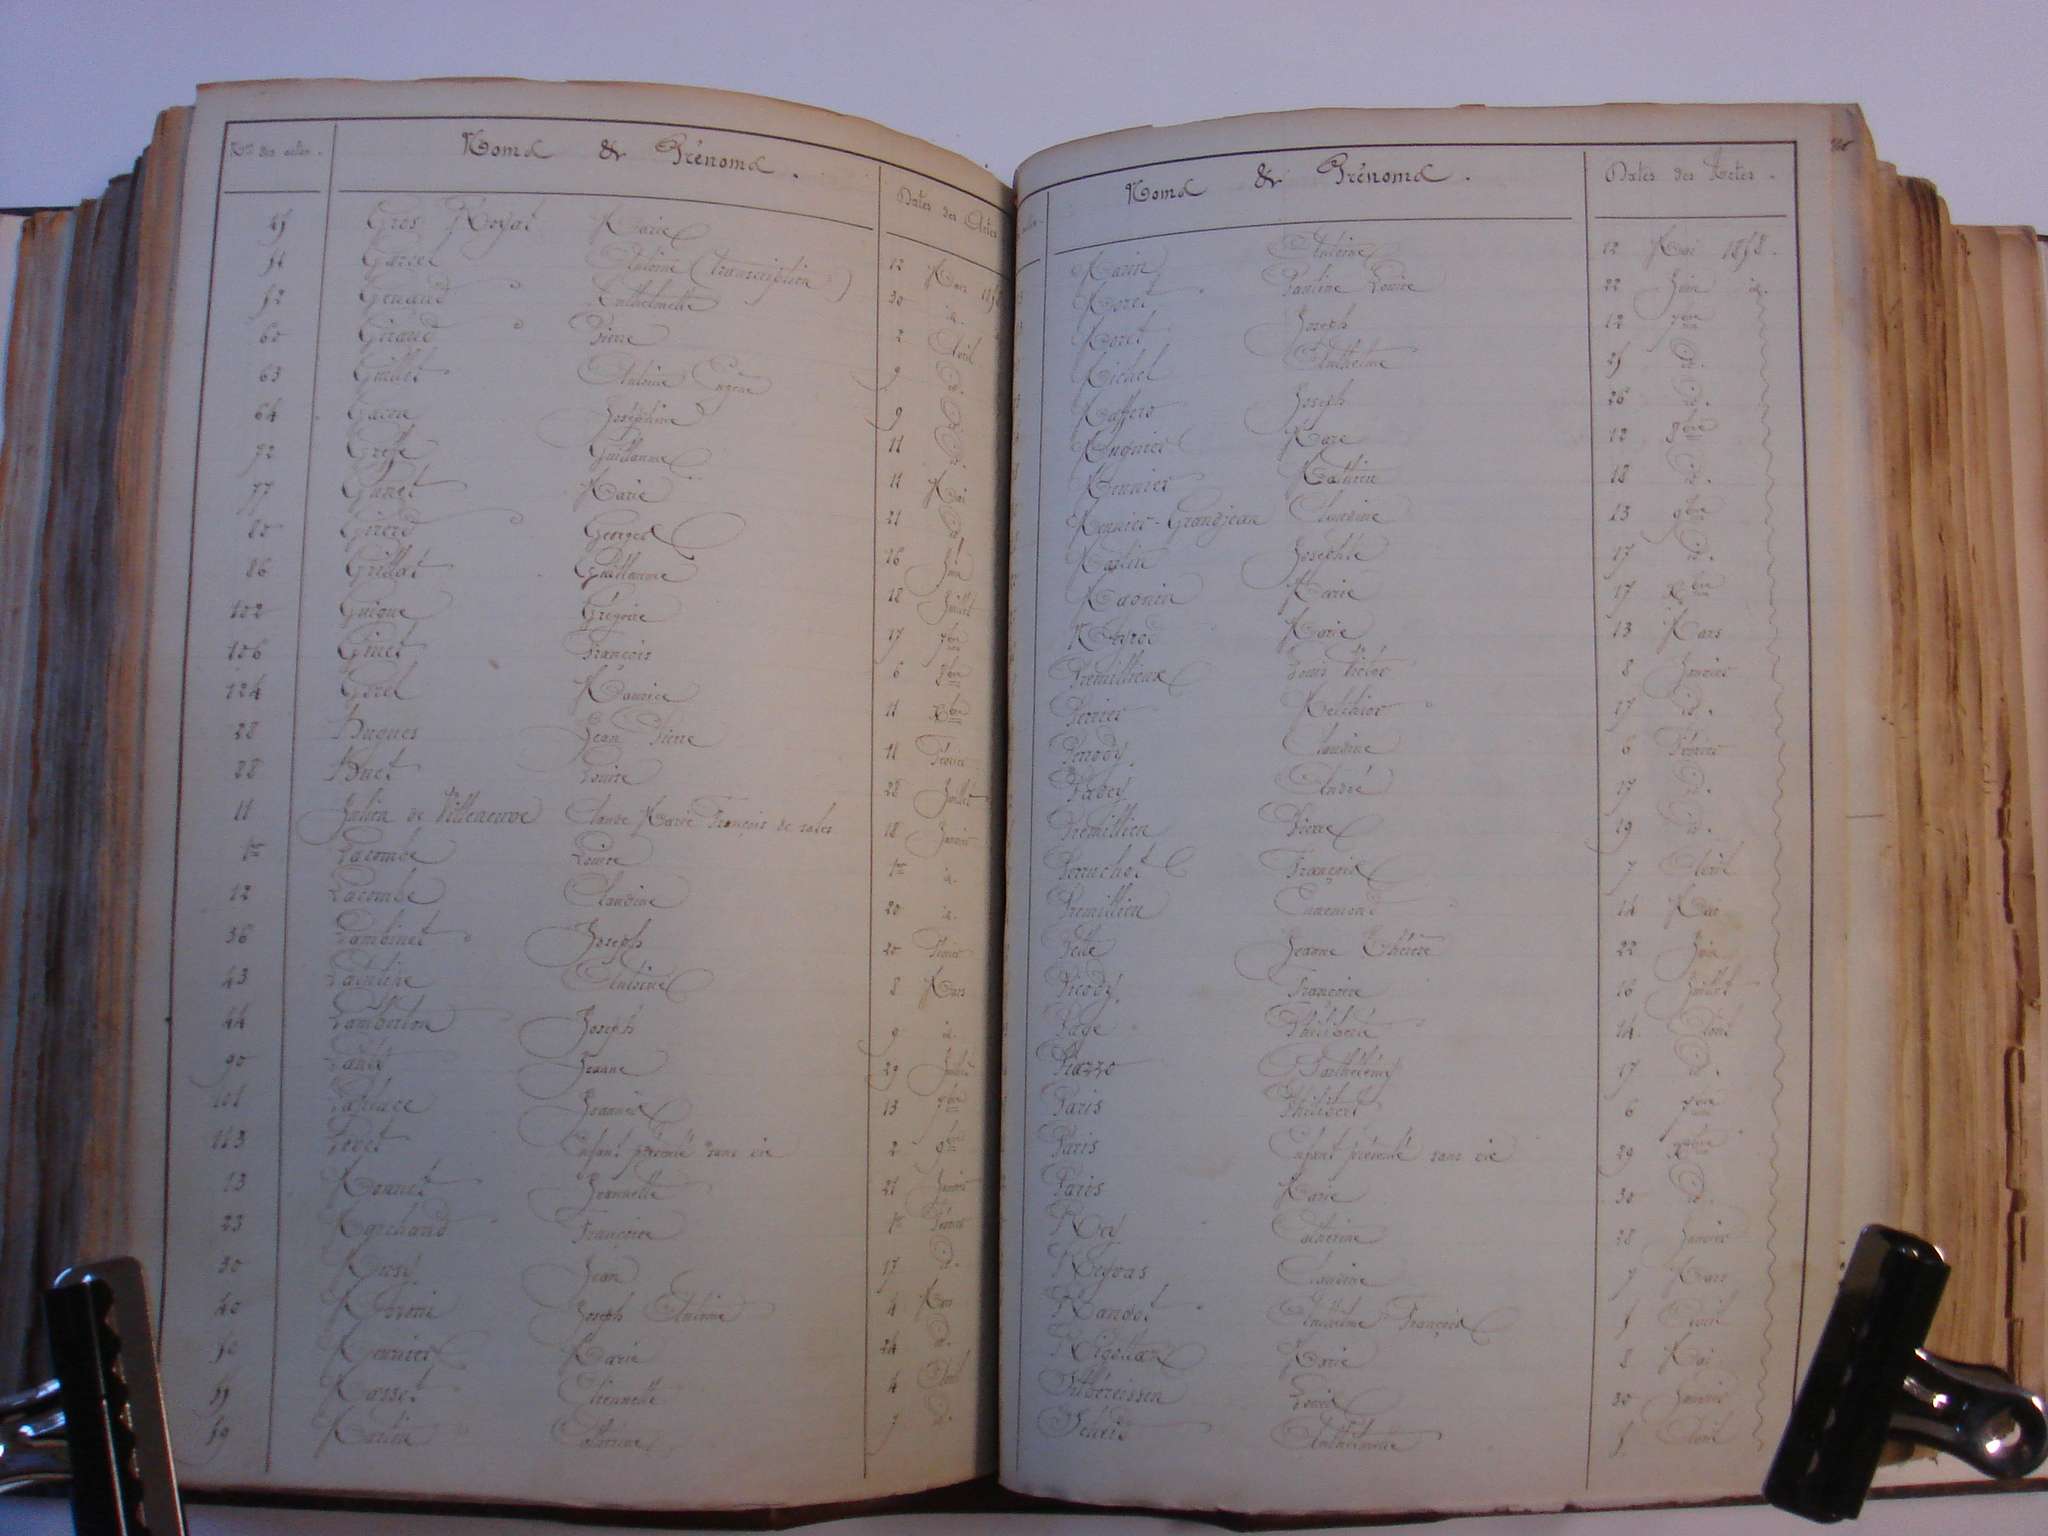 Nos des actes. Noms & Prénoms. Dates des Actes
Gros Royat Marie 12 Mars
Garcel Antoine (transcription) 30 id.
52 Genaud Anthelmette 2 Avril
60 Giraud Pierre 9 id.
63 Guillet Antoine Eugène 9 id.
64 Gacon Joséphine 11 id.
72 Greffe Guillaume 11 Mai
77 Gunet Marie 21 id.
80 Girerd Georges 26 Juin
86 Grillat Guillaume 18 Juillet
102 Guigue Grégoire 17 7bre
106 Ginet François 6 8bre
124 Gorel Maurice 11 Xbre
28 Hugues Jean Pierre 11 Février
88 Huet Louise 28 Juillet
11 Julien de Villeneuve Claude Marie François de sales 18 Janvier
1er Lacombe Louise 1er id.
12 Lacombe Claudine 20 id.
36 Lambinet Joseph 20 Février
43 Antoine 8 Mars
44 Lamberton Joseph 9 id.
90 Jeanne 29 Juillet
101 Laplace Jeannie 13 7bre
113 Levet Enfant présenté sans vie 2 9bre
13 Monnet Jeannette 21 Janvier
23 Marchand Françoise 1er Février
30 Jean 17 id.
40 Joseph Antoine 4 Mars
50 Meunier Marie 24 id.
Masset Etiennette 4 Avril
59 Martin Catherine id.
Noms & Prénoms. Dates des Actes.
Marin Antoine 12 Mai 1858.
Moret Pauline Louise 22 Juin id.
Moret Joseph 12 7bre
Michel Anthelme id.
Maffero Joseph 26 id.
Mugnier Marc 12 8bre
Meunier Mathieu 18 id.
Meunier-Grandjean Claudine 13 9bre
Martin Josephte 17 id.
Magnin Marie 17 Xbre
Neyrod Marie 13 Mars
Premillieux Louis Victor 8 Janvier
Perrier Melchior 17 id.
Perrody Claudine 6 Février
Pabey André 17 id.
Premillieu Pierre 19 id.
Perruchot François 7 Avril
Premillieu Ennemond 14 Mai
Petit Jeanne Thérèse 22 Juin
Françoise 16 Juillet
Page Philiberte 14 Août
Piazzo Barthélemy 17 id.
Paris Philibert 6 7bre
Paris Enfant présenté sans vie 29
Paris Marie 30 id.
Rey Catherine 28 Janvier
Reyvas Claudine 7 Mars
Randot Anthelme François Avril
Rigollat Marie 8 Mai
Silbéreissen Louis 30 Janvier
Anthelmette Avril